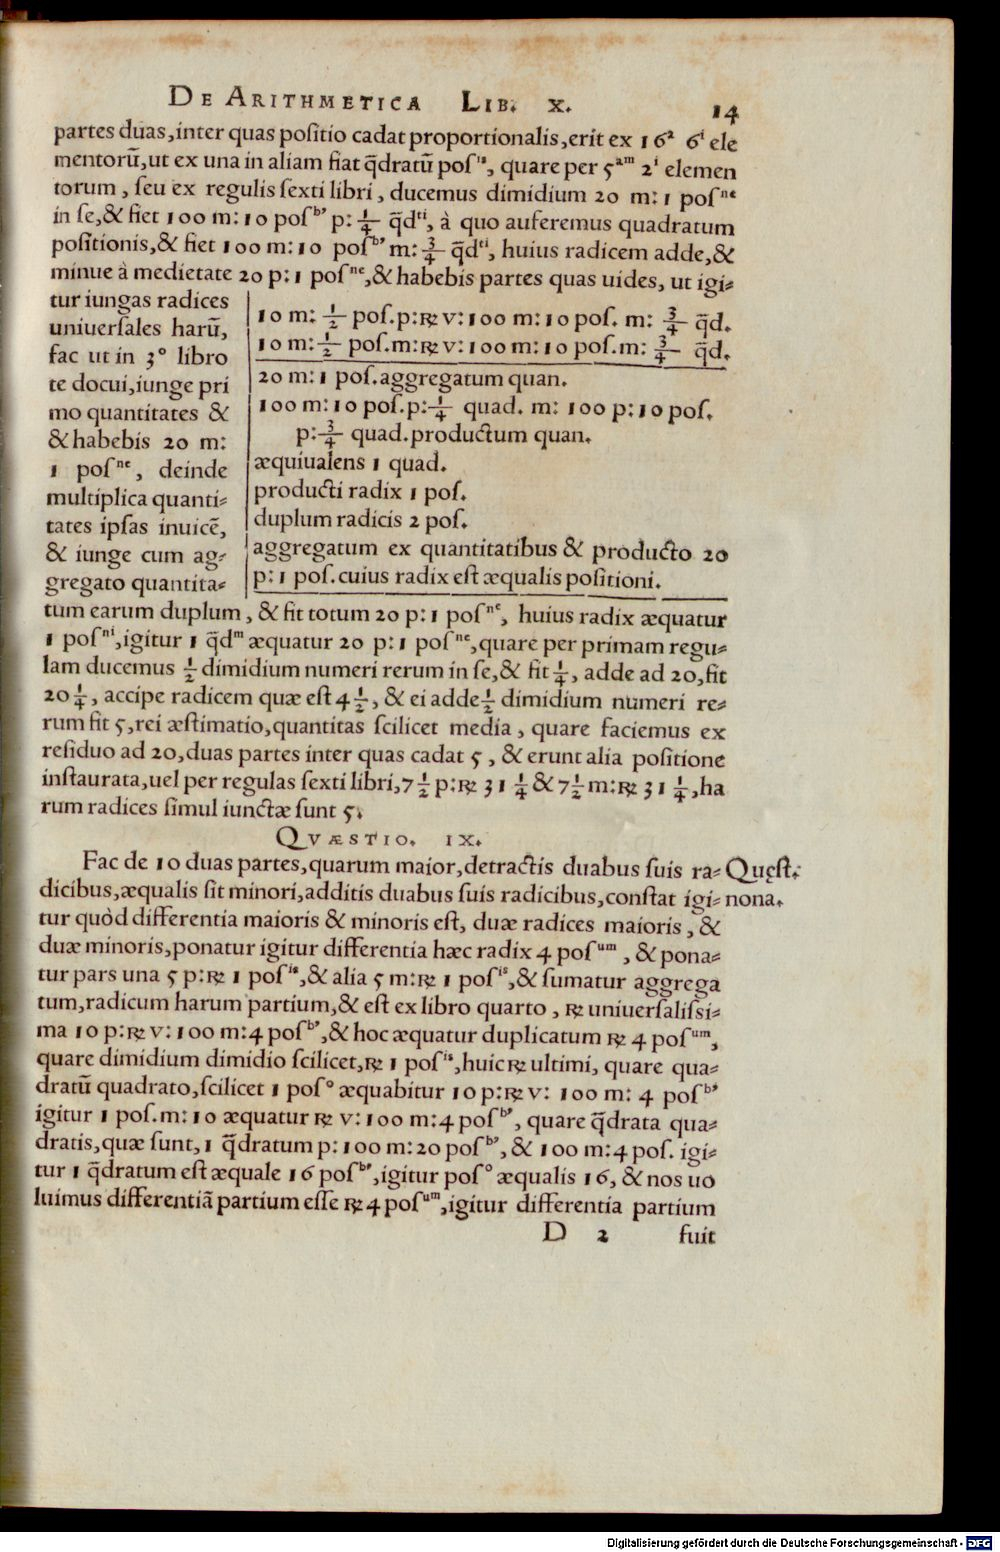 DE ARITHMETICA LIB. X. 14
partes duas, inter quas positio cadat proportionalis, erit ex 16ª 6ⁱ ele
mentorũ, ut ex una in aliam fiat q̃dratũ posⁱˢ, quare per 5ᵃᵐ 2ⁱ elemen
torum, seu ex regulis sexti libri, ducemus dimidium 20 m: 1 posⁿᵉ
in se, & fiet 100 m: 10 posᵇ’ p: 1/4 q̃dᵗⁱ, à quo auferemus quadratum
positionis, & fiet 100 m: 10 posᵇ’ m: 3/4 q̃dᵗⁱ, huius radicem adde, &
minue à medietate 20 p: 1 posⁿᵉ, & habebis partes quas uides, ut igi=
tur iungas radices
uniuersales harũ,
fac ut in 3° libro
te docui, iunge pri
mo quantitates &
& habebis 20 m:
1 posⁿᵉ, deinde
multiplica quanti=
tates ipsas inuicẽ,
& iunge cum ag=
gregato quantita=
10 m: 1/2 pos. p: ℞ v: 100 m: 10 pos. m: 3/4 q̃d.
10 m: 1/2 pos. m: ℞ v: 100 m: 10 pos. m: 3/4 q̃d.
20 m: 1 pos. aggregatum quan.
100 m: 10 pos. p: 1/4 quad. m: 100 p: 10 pos.
p: 3/4 quad. productum quan.
æquiualens 1 quad.
producti radix 1 pos.
duplum radicis 2 pos.
aggregatum ex quantitatibus & producto 20
p: 1 pos. cuius radix est æqualis positioni.
tum earum duplum, & fit totum 20 p: 1 posⁿᵉ, huius radix æquatur
1 posⁿⁱ, igitur 1 q̃dᵐ æquatur 20 p: 1 posⁿᵉ, quare per primam regu=
lam ducemus 1/2 dimidium numeri rerum in se, & fit 1/4, adde ad 20, fit
20 1/4, accipe radicem quæ est 4 1/2, & ei adde 1/2 dimidium numeri re=
rum fit 5, rei æstimatio, quantitas scilicet media, quare faciemus ex
residuo ad 20, duas partes inter quas cadat 5, & erunt alia positione
instaurata, uel per regulas sexti libri, 7 1/2 p: ℞ 31 1/4 & 7 1/2 m: ℞ 31 1/4, ha
rum radices simul iunctæ sunt 5.
QVÆSTIO. IX.
Fac de 10 duas partes, quarum maior, detractis duabus suis ra= Quęst.
dicibus, æqualis sit minori, additis duabus suis radicibus, constat igi= nona.
tur quòd differentia maioris & minoris est, duæ radices maioris, &
duæ minoris, ponatur igitur differentia hæc radix 4 posᵘᵐ, & pona=
tur pars una 5 p: ℞ 1 posⁱˢ, & alia 5 m: ℞ 1 posⁱˢ, & sumatur aggrega
tum, radicum harum partium, & est ex libro quarto, ℞ uniuersalissi=
ma 10 p: ℞ v: 100 m: 4 posᵇ’, & hoc æquatur duplicatum ℞ 4 posᵘᵐ,
quare dimidium dimidio scilicet, ℞ 1 posⁱˢ, huic ℞ ultimi, quare qua=
dratũ quadrato, scilicet 1 pos° æquabitur 10 p: ℞ v: 100 m: 4 posᵇ’
igitur 1 pos. m: 10 æquatur ℞ v: 100 m: 4 posᵇ’, quare q̃drata qua=
dratis, quæ sunt, 1 q̃dratum p: 100 m: 20 posᵇ’, & 100 m: 4 pos. igi=
tur 1 q̃dratum est æquale 16 posᵇ’, igitur pos° æqualis 16, & nos uo
luimus differentiã partium esse ℞ 4 posᵘᵐ, igitur differentia partium
D 2 fuit
Digitalisierung gefördert durch die Deutsche Forschungsgemeinschaft - DFG